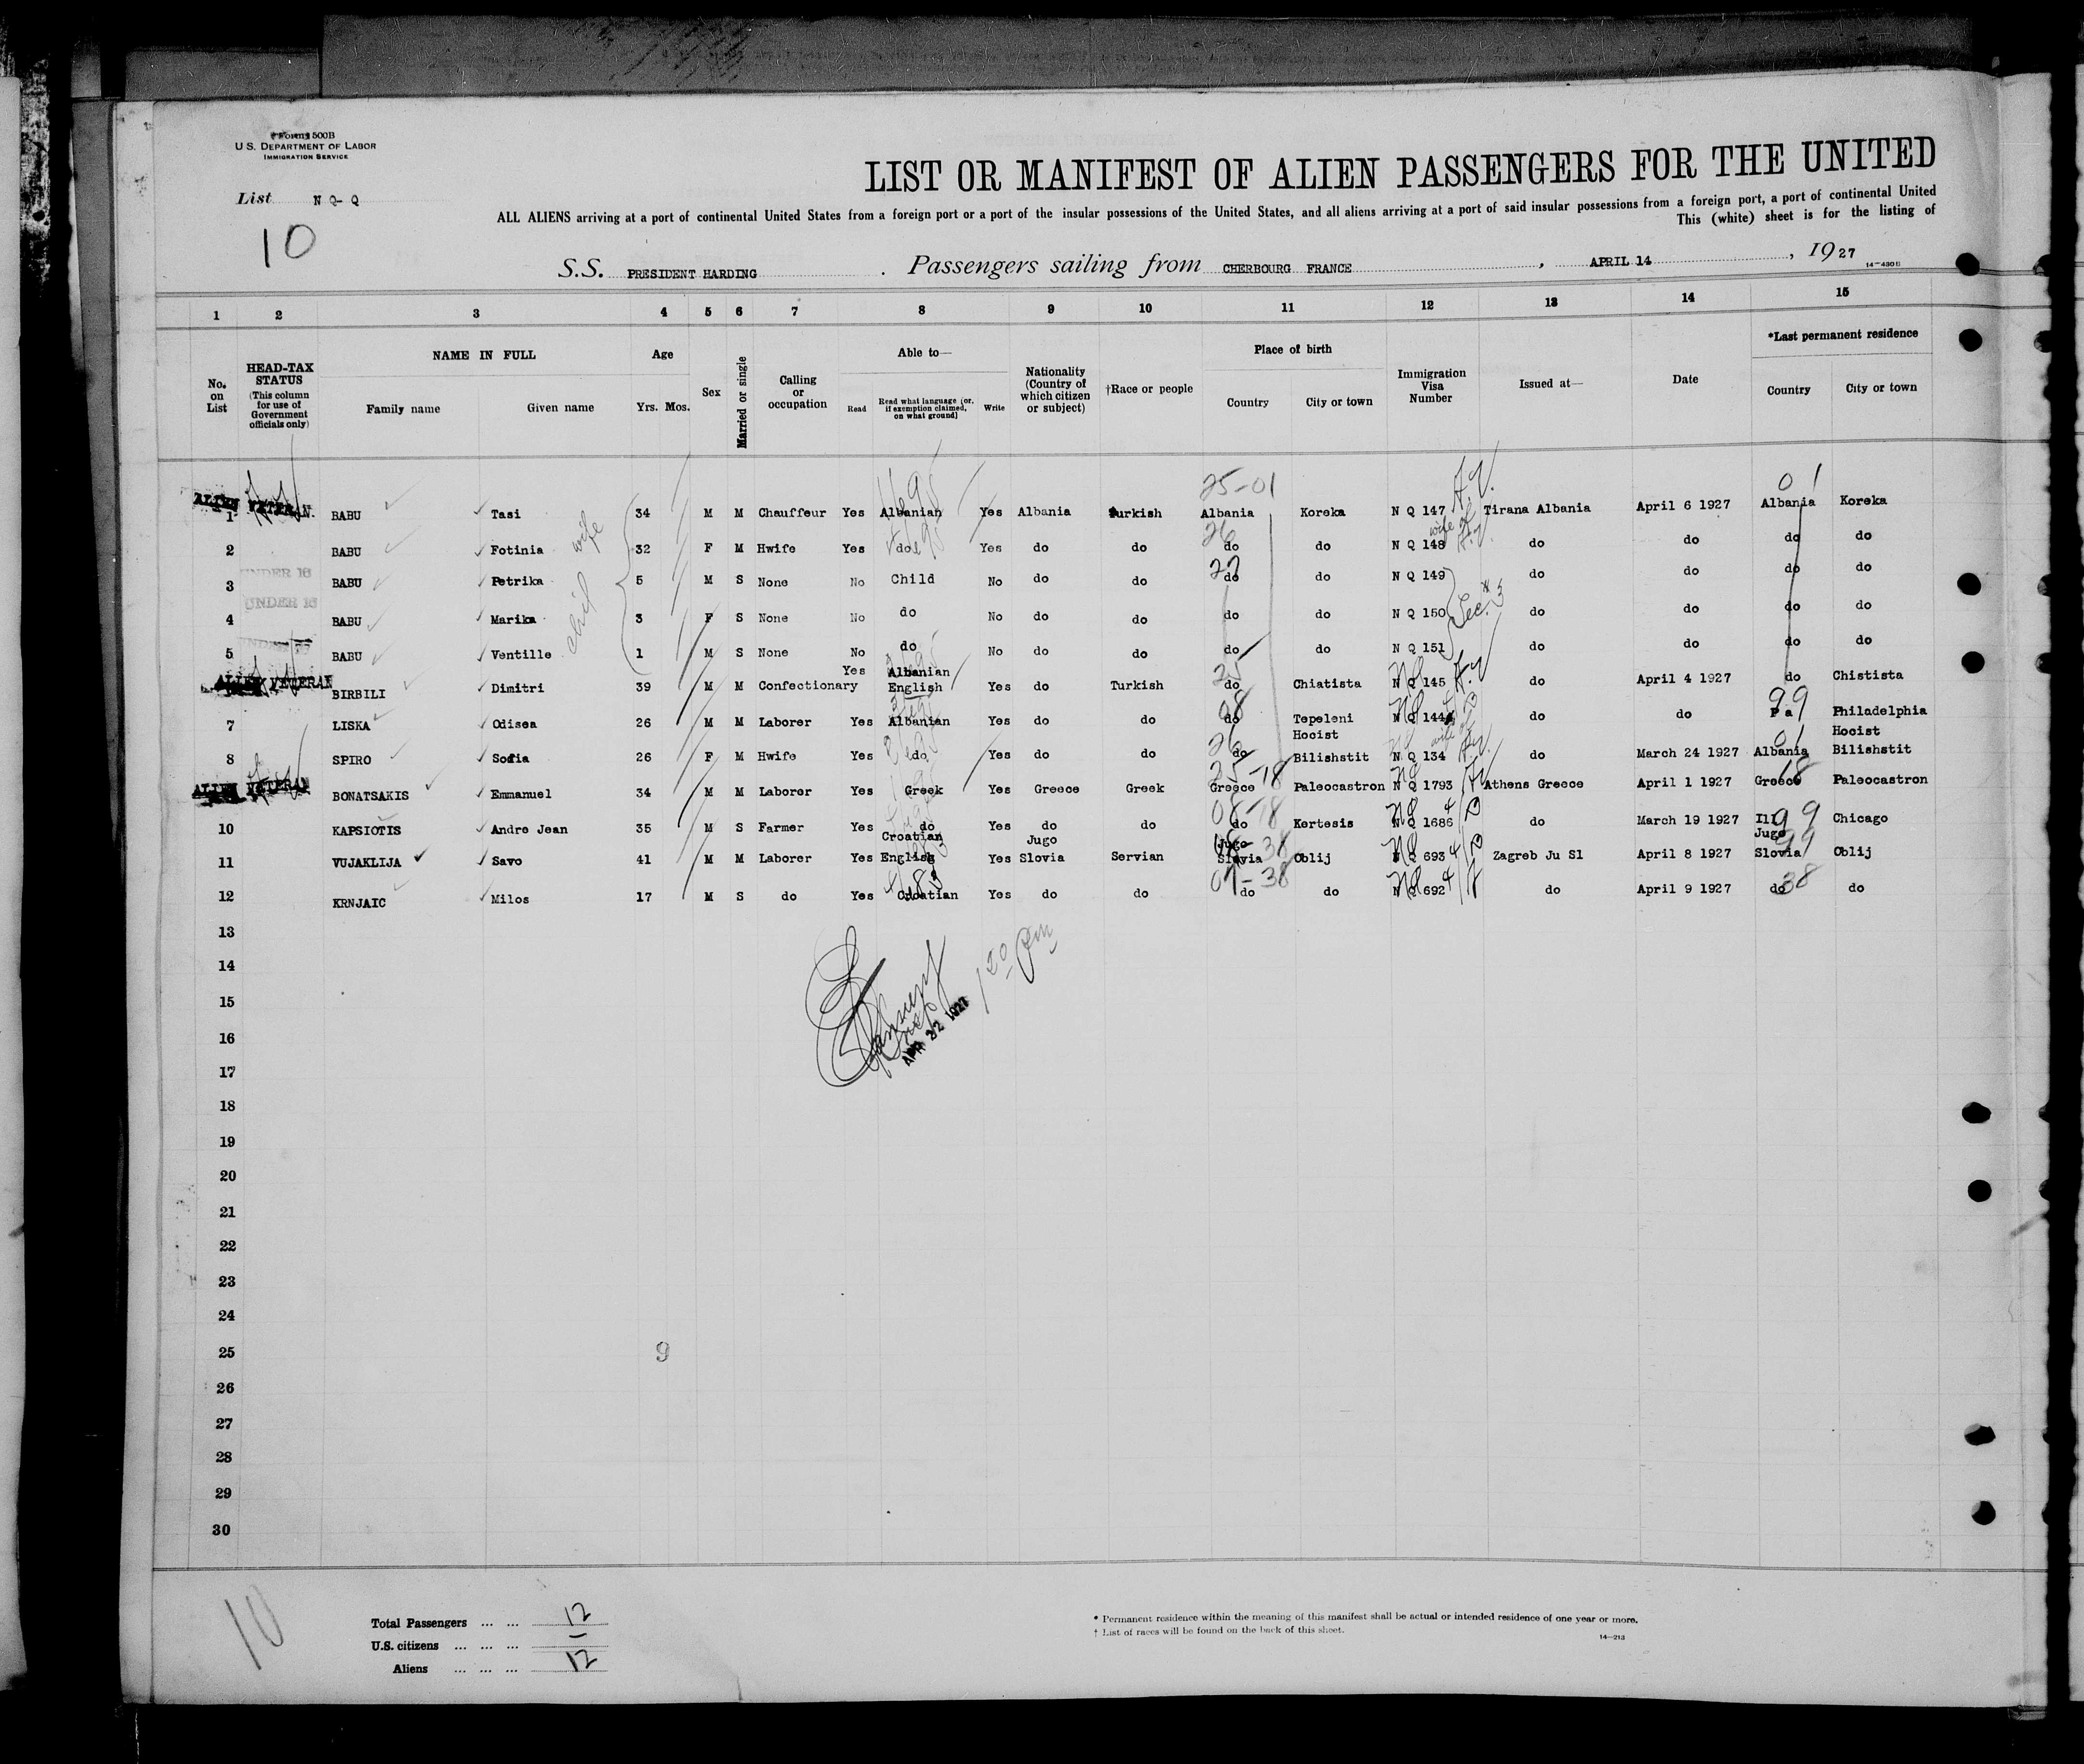 Form 500B
U. S. DEPARTMENT OF LABOR
IMMIGRATION SERVICE
LIST OR MANIFEST OF ALIEN PASSENGERS FOR THE UNITED
List N Q- Q
10
ALL ALIENS arriving at a port of continental United States from a foreign port or a port of the insular possessions of the United States, and all aliens arriving at a port of said insular possessions from a foreign port, a port of continental United
This (white) sheet is for the listing of
S.S. PRESIDENT HARDING . Passengers sailing from CHERBOURG FRANCE , APRIL 14 , 1927
14-430B
1 2 3 4 5 6 7 8 9 10 11 12 13 14 15
No. on List
HEAD-TAX STATUS (This column for use of Government officials only)
NAME IN FULL
Family name Given name
Age
Yrs. Mos.
Sex
Married or single
Calling or occupation
Able to—
Read
Read what language (or, if exemption claimed, on what ground)
Write
Nationality (Country of which citizen or subject)
†Race or people
Place of birth
Country City or town
Immigration Visa Number
Issued at—
Date
*Last permanent residence
Country City or town
25-01 01
ALIEN VETERAN.
1 BABU Tasi 34 M M Chauffeur Yes Albanian Yes Albania Turkish Albania Koreka N Q 147 Tirana Albania April 6 1927 Albania Koreka
wife wife of
2 BABU Fotinia 32 F M Hwife Yes do Yes do do do do N Q 148 do do do do
UNDER 16
3 BABU Petrika 5 M S None No Child No do do do do N Q 149 do do do do
UNDER 16
child
4 BABU Marika 3 F S None No do No do do do do N Q 150 do do do do
5 BABU Ventille 1 M S None No do No do do do do N Q 151 do do do do
ALIEN VETERAN
BIRBILI Dimitri 39 M M Confectionary Yes Albanian English Yes do Turkish do Chiatista N Q 145 do April 4 1927 do Chistista
7 LISKA Odisea 26 M M Laborer Yes Albanian Yes do do do Tepeleni N Q 144 do do Pa 99 Philadelphia
8 SPIRO Sofia 26 F M Hwife Yes do Yes do do do Hocist Bilishstit N Q 134 do March 24 1927 Albania Hocist Bilishstit
ALIEN VETERAN
BONATSAKIS Emmanuel 34 M M Laborer Yes Greek Yes Greece Greek Greece 25-18 Paleocastron N Q 1793 Athens Greece April 1 1927 Greece 18 Paleocastron
10 KAPSIOTIS Andre Jean 35 M S Farmer Yes do Yes do do do 08-18 Kertesis N Q 1686 do March 19 1927 Ill 99 Chicago
11 VUJAKLIJA Savo 41 M M Laborer Yes Croatian English Yes Jugo Slovia Servian Jugo Slavia 38 Oblij N Q 693 Zagreb Ju Sl April 8 1927 Jugo Slovia 99 Oblij
12 KRNJAIC Milos 17 M S do Yes Croatian Yes do do do do N Q 692 do April 9 1927 do 38 do
13
14
1 20 Pm
15
16 APR 22 1927
17
18
19
20
21
22
23
24
25 9
26
27
28
29
30
10
Total Passengers ... ... 12
U.S. citizens ... ... ... —
Aliens ... ... ... 12
* Permanent residence within the meaning of this manifest shall be actual or intended residence of one year or more.
† List of races will be found on the back of this sheet.
14-213